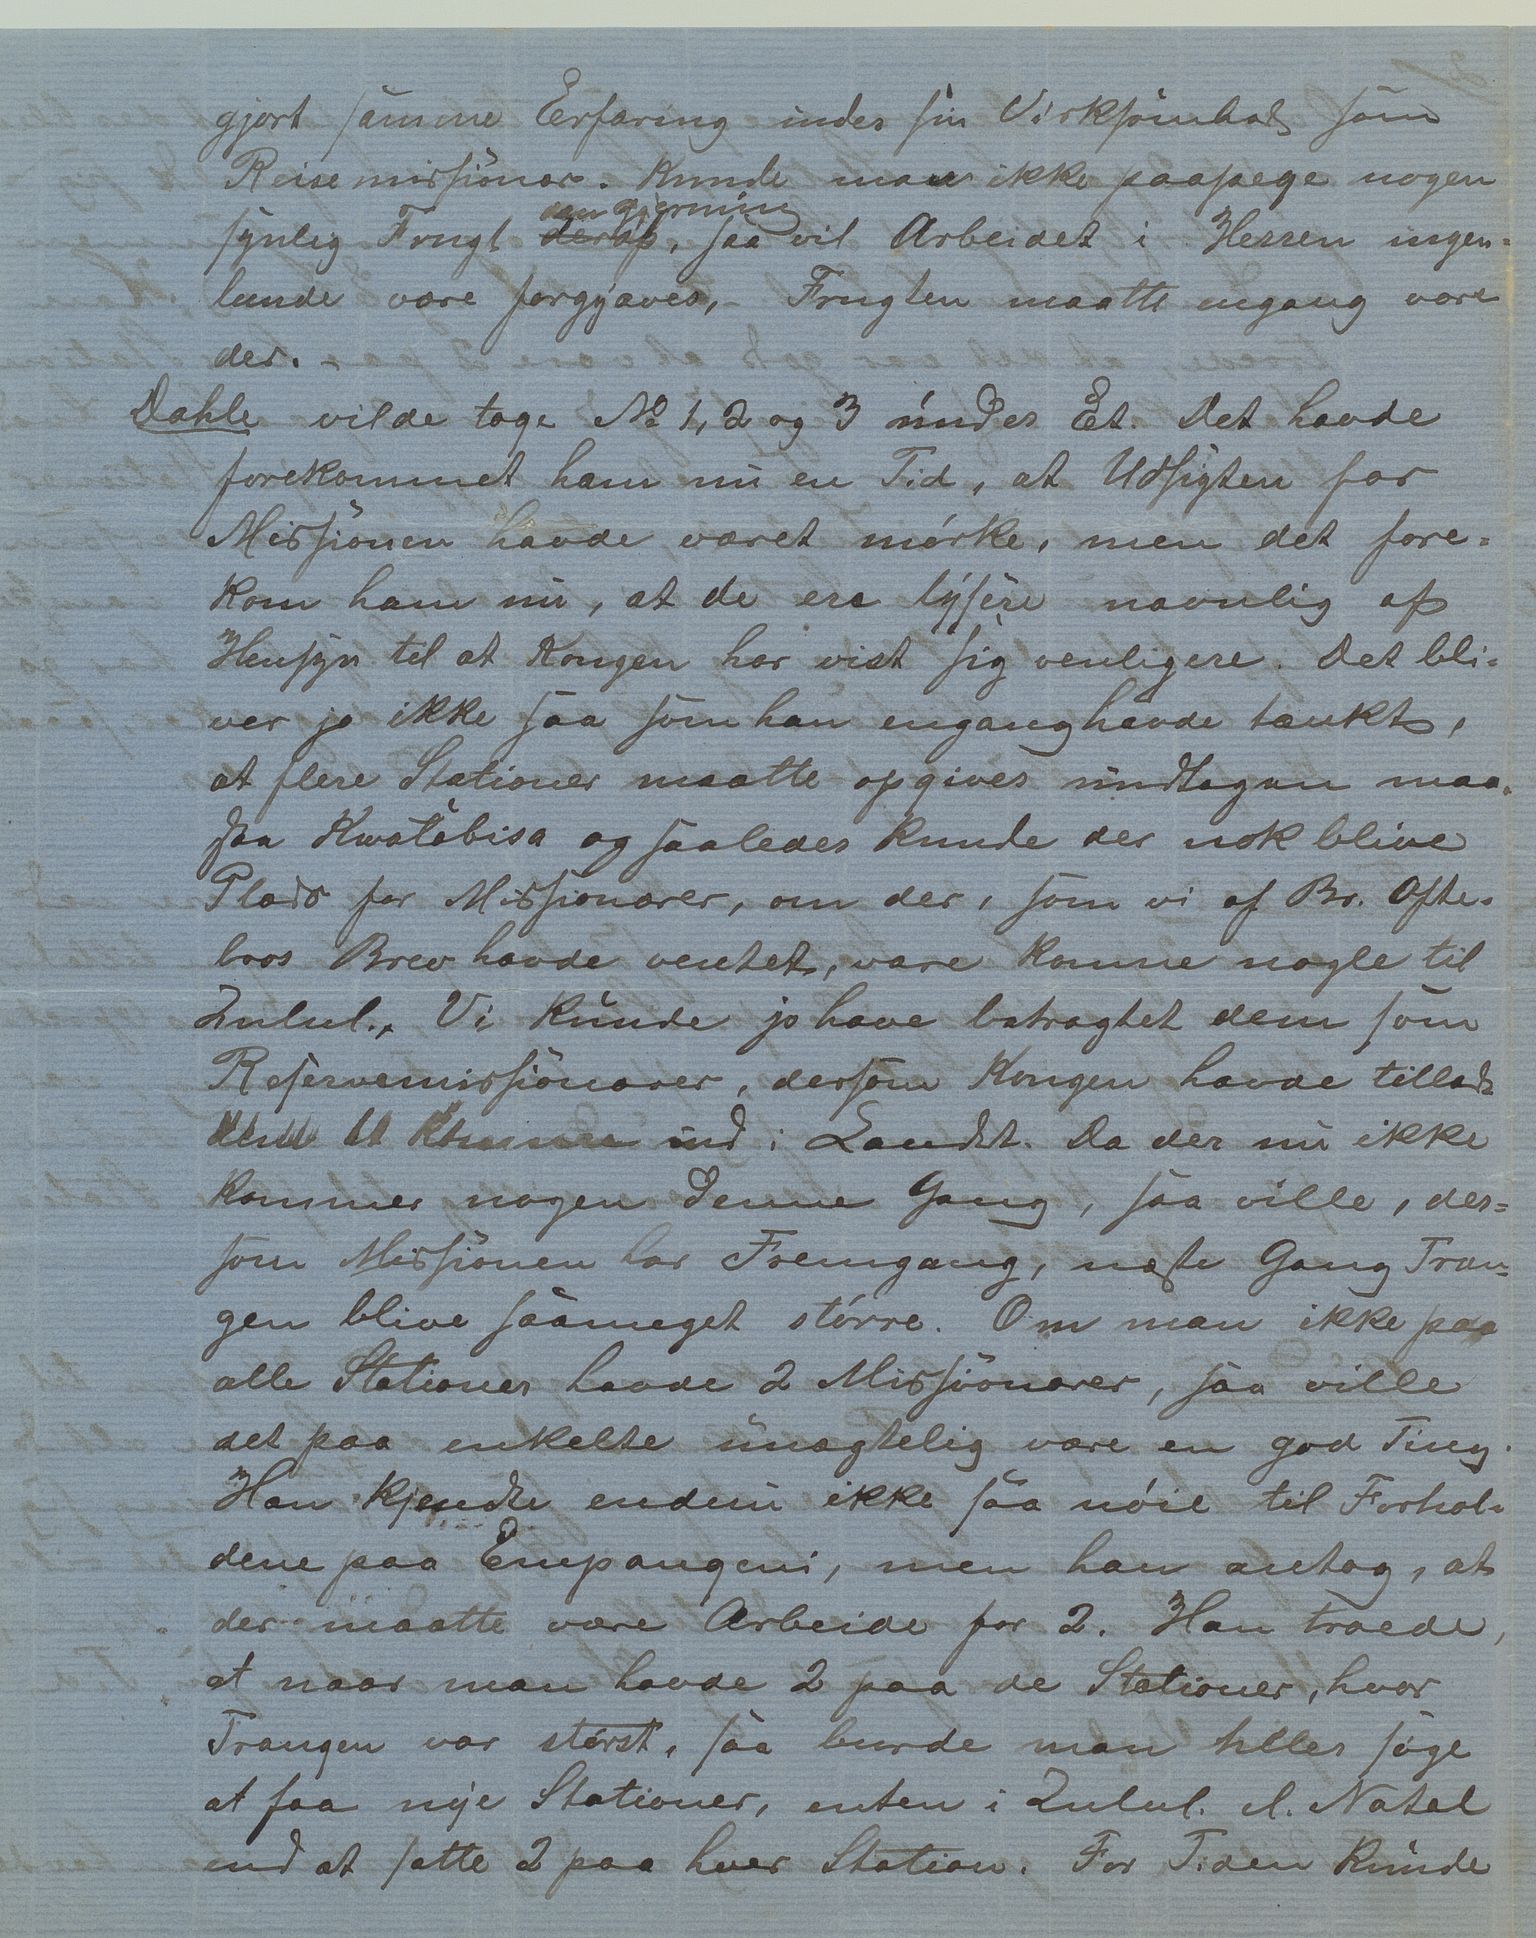 gjort samme Erfaring under sin Virksomhed som
Reisemissionær. Kunde man ikke paapege nogen
synlig Frugt deraf, saa vil Arbeidet i Herren ingen=
lunde være forgjæves, - Frugten maatte engang være
der. -
Dahle vilde tage No 1, 2 og 3 under Et. Det havde
forekommet ham nu en Tid, at Udsigten for
Missionen havde været mørke, men det fore=
kom ham nu, at de ere lysere navnlig af
Hensyn til at Kongen har vist sig venligere. Det bli=
ver jo ikke saa som han engang havde tænkt,
at flere Stationer maatte opgives undtagen maa=
ske Kwatabisa og saaledes kunde der nok blive
Plads for Missionærer, om der, som vi af Br. Ofte=
bros Brev havde ventet, vare komne nogle til
Zulul., Vi kunde jo have betragtet dem som
Reservemissionærer, dersom Kongen havde tilladt
dem at komme ind i Landet. Da der nu ikke
kommer nogen denne Gang, saa ville, der=
som Missionen har Fremgang, næste Gang Tran=
gen blive saameget større. Om man ikke paa
alle Stationer havde 2 Missionærer, saa ville
det paa enkelte unægtelig være en god Ting.
Han kjendte endnu ikke saa nøie til Forhol=
dene paa Empangeni, men han antog, at
der maatte være Arbeide for 2. Han troede,
at naar man havde 2 paa de Stationer, hvor
Trangen var størst, saa burde man heller søge
at faa nye Stationer, enten i Zulul. el. Natal
end at sætte 2 paa hver Station. For Tiden kunde